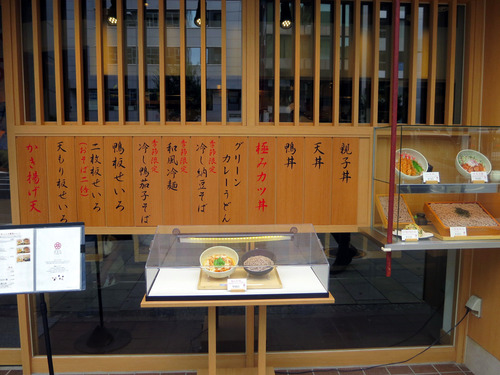 親子丼
天丼
鴨丼
極みカツ丼
グリーン
カレーうどん
季節限定
冷し納豆そば
季節限定
和風冷麺
季節限定
冷し鴨茄子そば
鴨板せいろ
二枚板せいろ
(おそば一種)
天もり板せいろ
かき揚げ天